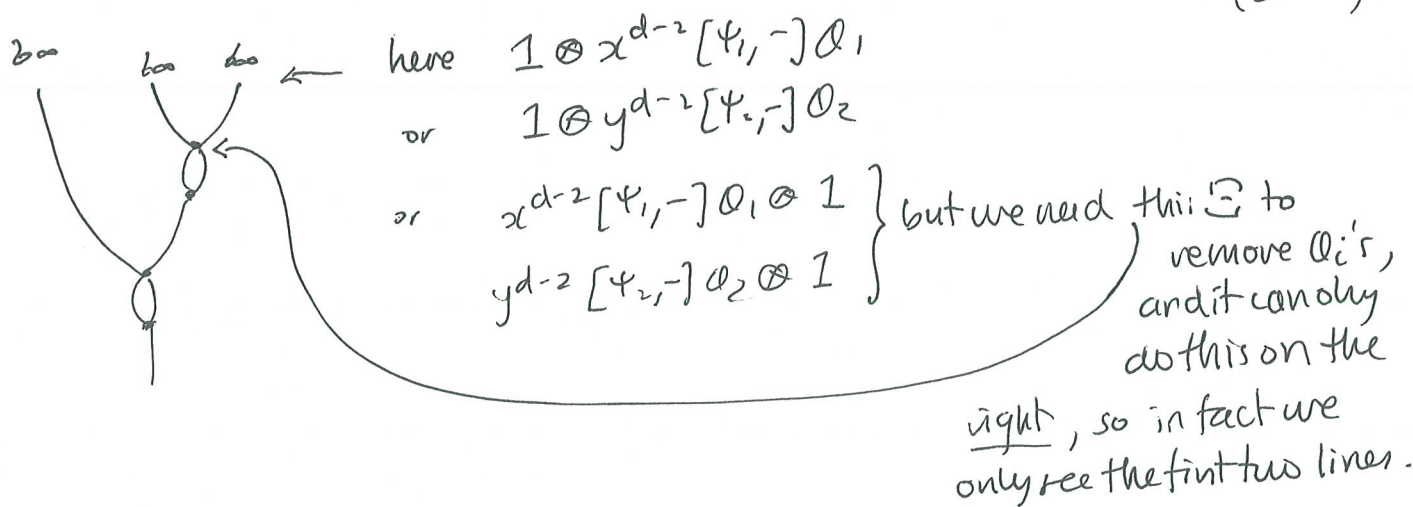 b∞ b∞ b∞ ← here 1 ⊗ x^{d-2} [ψ₁, -] θ₁
or 1 ⊗ y^{d-2} [ψ₂, -] θ₂
or x^{d-2} [ψ₁, -] θ₁ ⊗ 1 } but we need this to
y^{d-2} [ψ₂, -] θ₂ ⊗ 1
remove θᵢ's,
and it can only
do this on the
right, so in fact we
only see the first two lines.